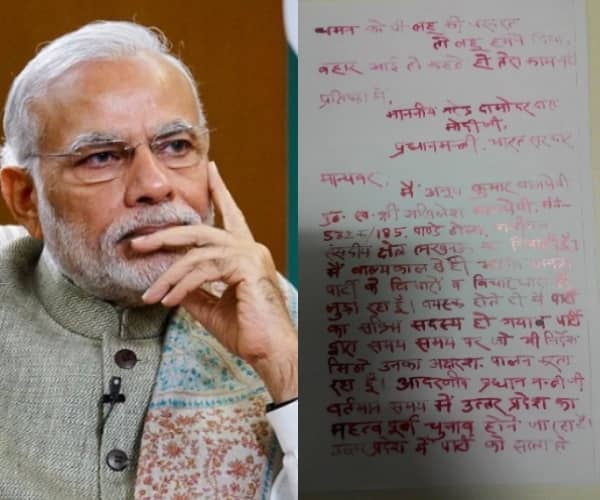 चमन को जो लहू की जरूरत
तो लहू हमने दिया,
बहार आई तो कहते हो तेरा काम नहीं
प्रतिष्ठा में,
माननीय नरेन्द्र दामोदर दास
मोदी जी,
प्रधानमन्त्री, भारत सरकार
मान्यवर,
मैं अनूप कुमार बाजपेयी
पुत्र स्व. श्री अखिलेश
पाण्डे टोला,
लखनऊ का निवासी हूँ।
मैं बाल्यकाल से ही भारतीय जनता
पार्टी के विचारों व विचारधारा से
जुड़ा रहा हूँ। वयस्क होते ही मैं पार्टी
का सक्रिय सदस्य हो गया व पार्टी
द्वारा समय समय पर जो भी निर्देश
मिले उनका अक्षरशः पालन करता
रहा हूँ। आदरणीय प्रधान मन्त्री जी
वर्तमान समय में उत्तर प्रदेश का
महत्वपूर्ण चुनाव होने जा रहा है।
उत्तर प्रदेश में पार्टी को सत्ता से